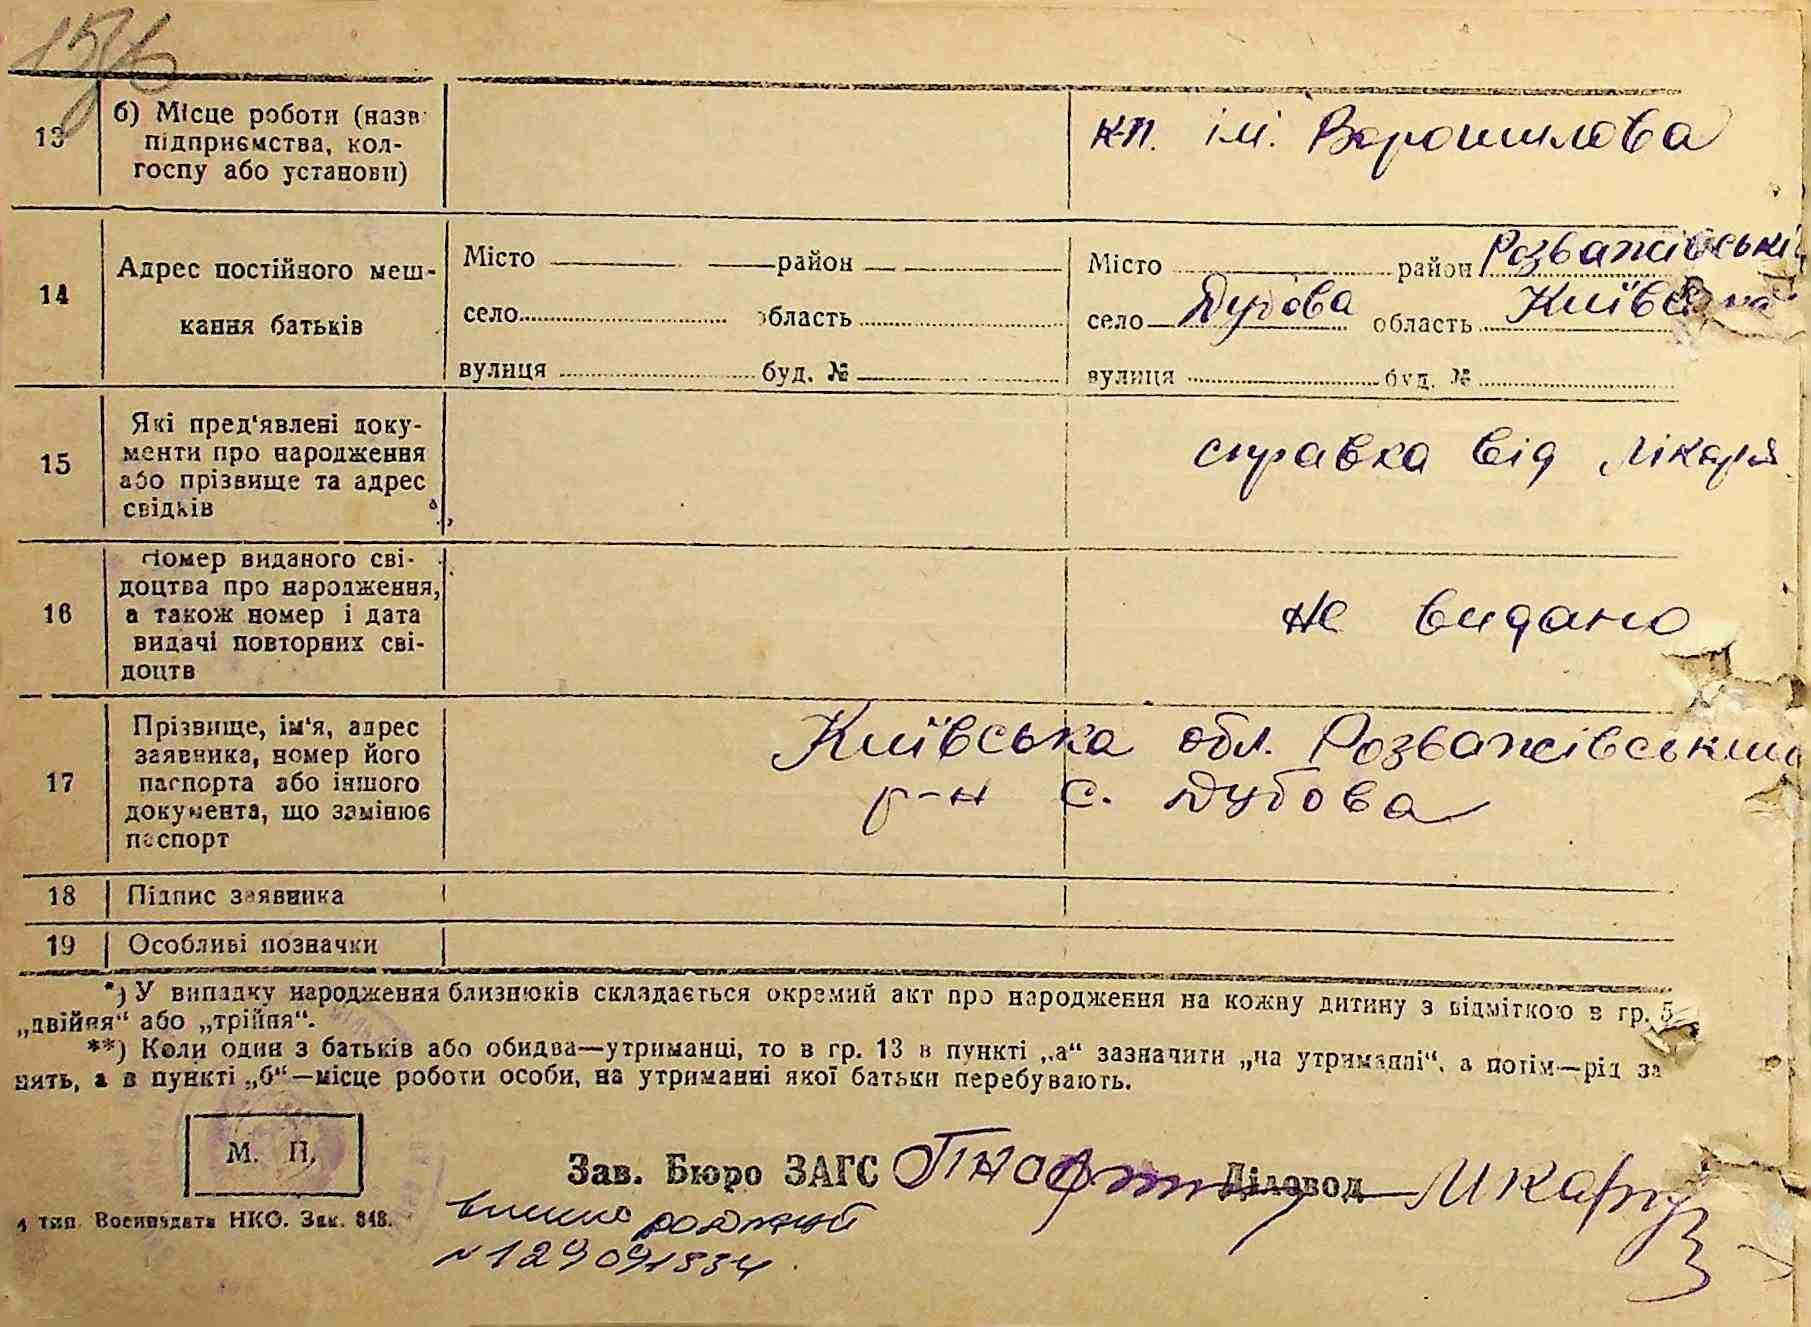 13
б) Місце роботи (назв
підприємства, кол-
госпу або установи)
к-п. ім. Ворошилова
14
Адрес постійного меш-
кання батьків
Місто район
село область
вулиця буд. №
Місто район Розважівський
село Дубова область Київська
вулиця буд. №
15
Які пред'явлені доку-
менти про народження
або прізвище та адрес
свідків
справка від лікаря
16
Номер виданого сві-
доцтва про народження,
а також номер і дата
видачі повторних сві-
доцтв
не видано
17
Прізвище, ім'я, адрес
заявника, номер його
паспорта або іншого
документа, що замінює
паспорт
Київська обл. Розважівський
р-н с. Дубова
18 Підпис заявника
19 Особливі позначки
*) У випадку народження близнюків складається окремий акт про народження на кожну дитину з відміткою в гр. 5
„двійня“ або „трійня“.
**) Коли один з батьків або обидва—утриманці, то в гр. 13 в пункті „а“ зазначити „на утриманні“, а потім—рід за
нять, а в пункті „б“—місце роботи особи, на утриманні якої батьки перебувають.
М. П.
Зав. Бюро ЗАГС Діловод
4 тип. Воениздата НКО. Зак. 848.